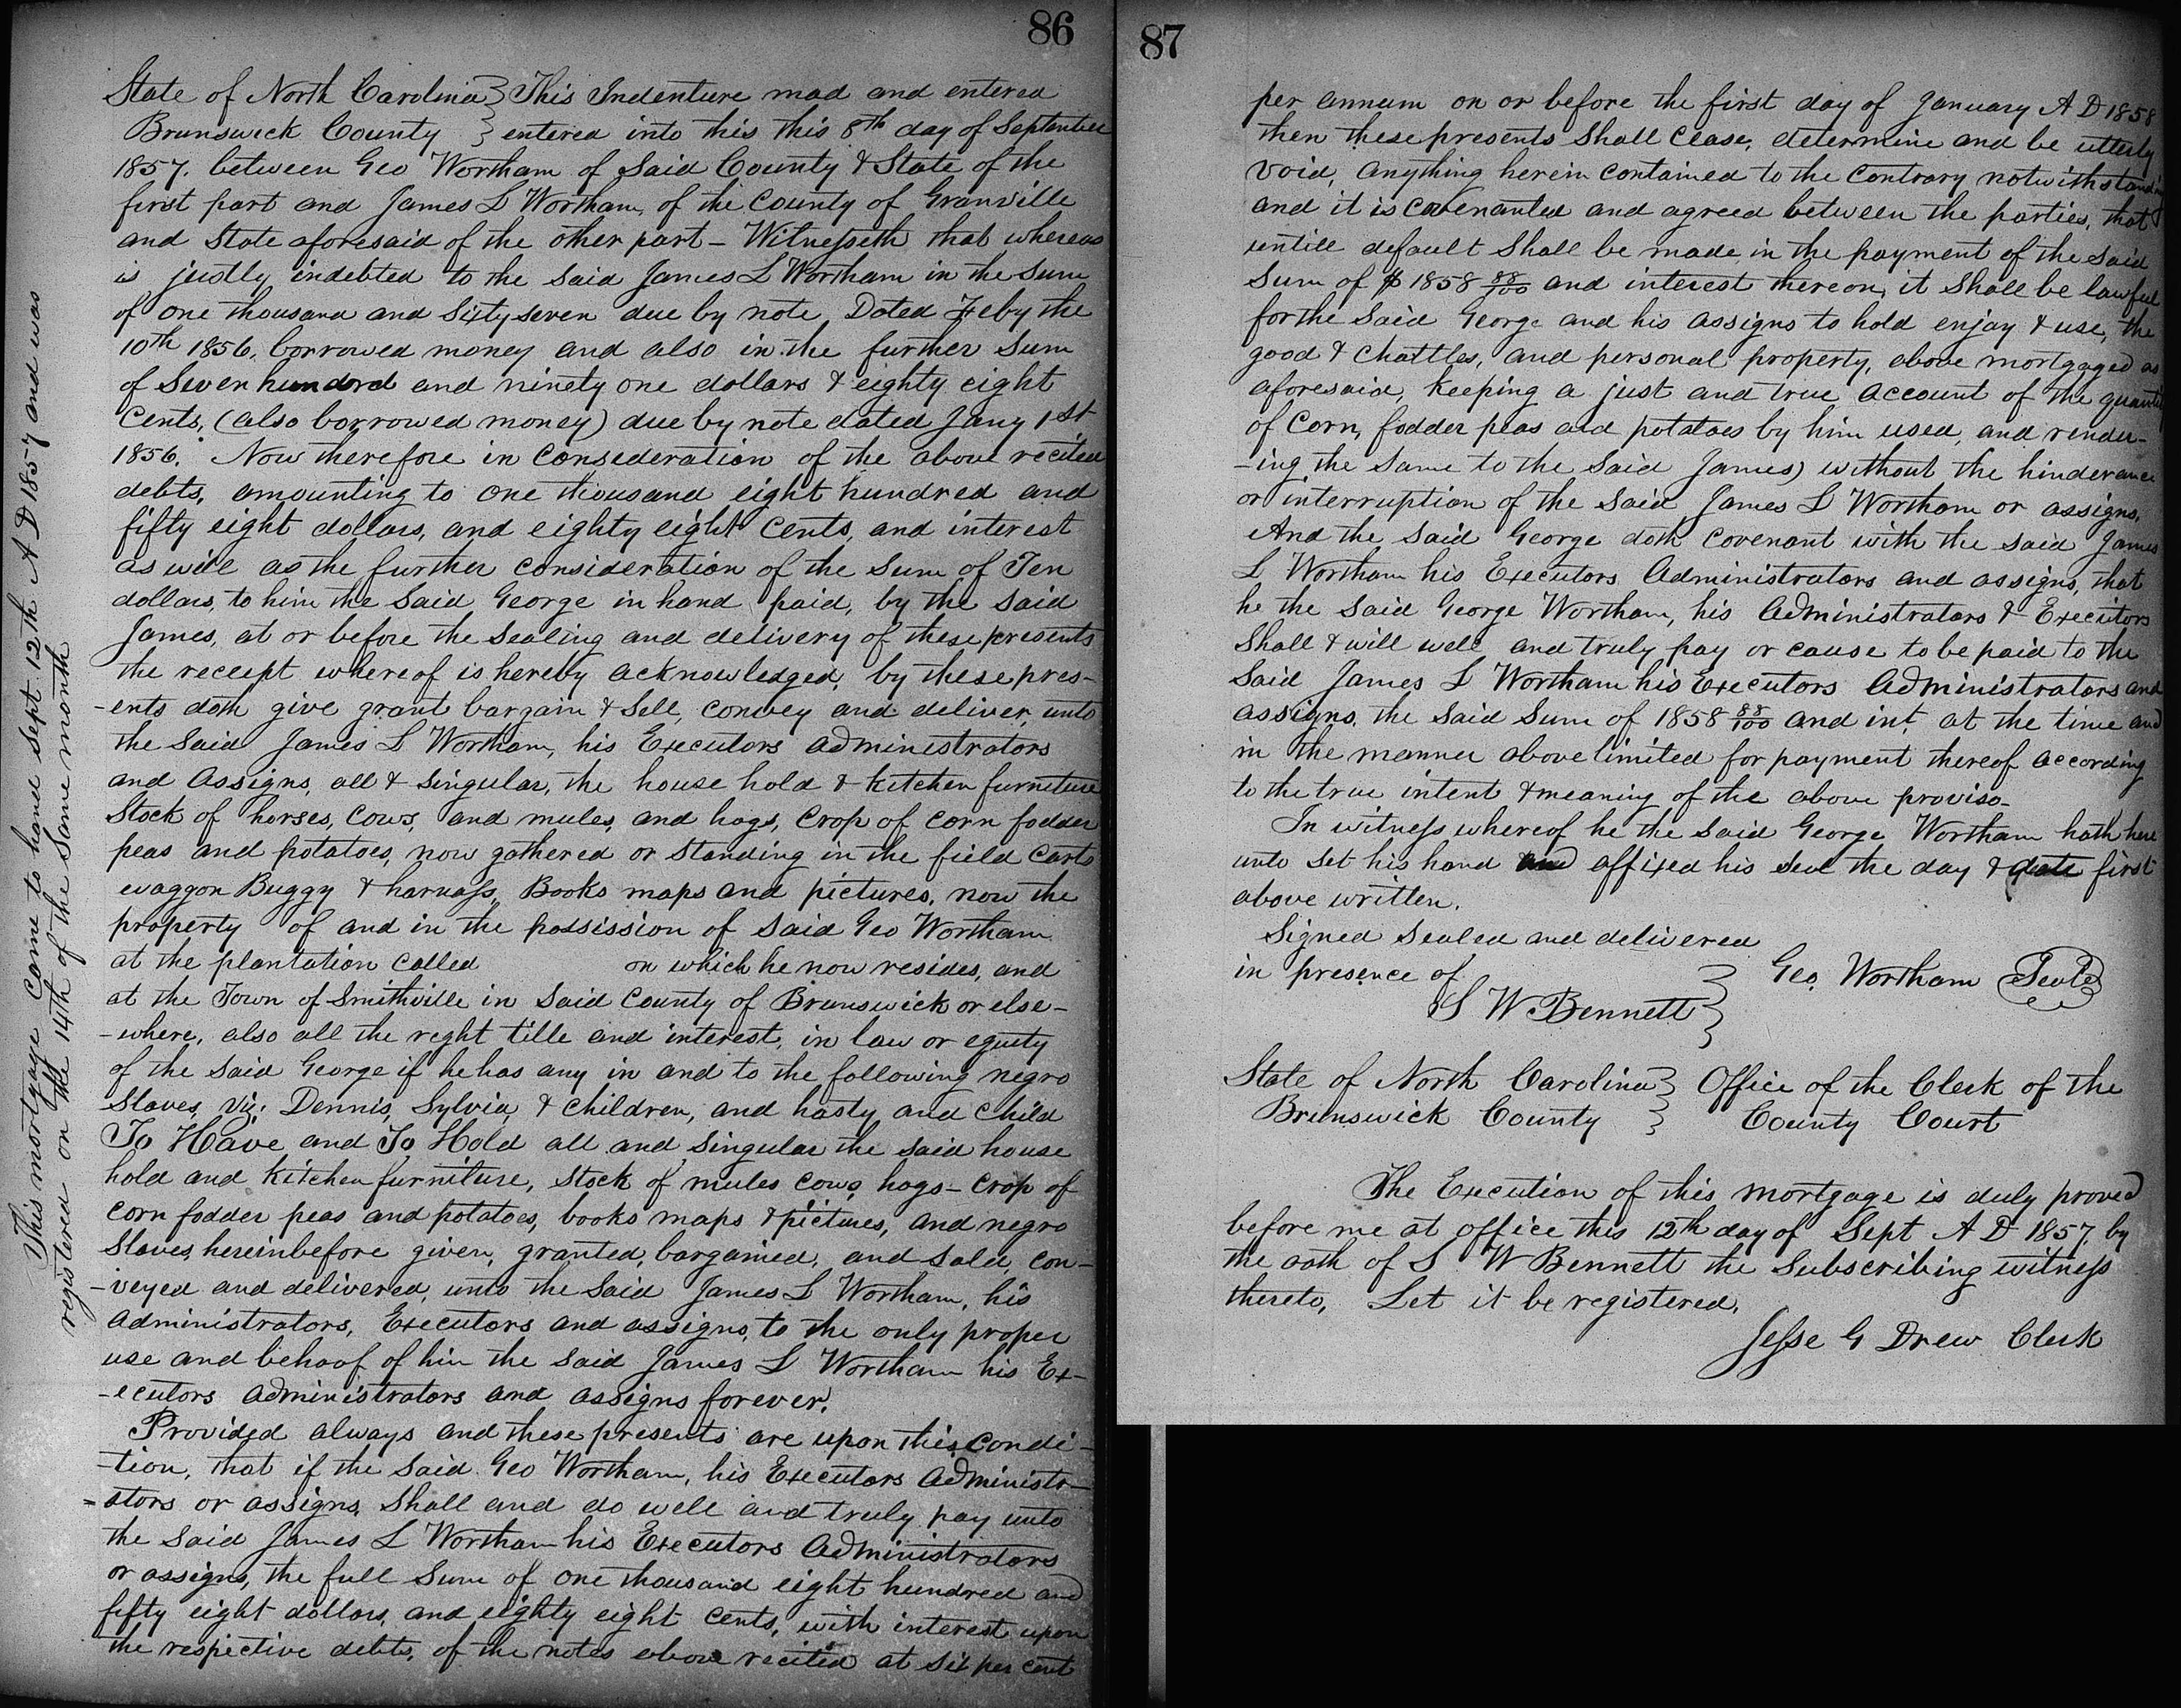 86
State of North Carolina } This Indenture mad and entered
Brunswick County } entered into this this 8th day of September
1857. between Geo Wortham of Said County & State of the
first part and James L Wortham, of the County of Granville
and State aforesaid of the other part - Witnesseth that whereas
is justly indebted to the said James L Wortham in the sum
of one thousand and Sixty seven due by note, Dated Feby the
10th 1856, borrowed money and also in the further Sum
of Seven hundred and ninety one dollars & eighty eight
Cents, (also borrowed money) due by note dated Jany 1st
1856. Now therefore in Consideration of the above recited
debts, amounting to one thousand eight hundred and
fifty eight dollars, and eighty eight Cents, and interest
as well as the further Consideration of the Sum of Ten
dollars, to him the Said George in hand paid, by the said
James, at or before the Sealing and delivery of these presents
the receipt whereof is hereby acknowledged, by these pres-
-ents doth give grant bargain & Sell, convey and deliver, unto
the Said James L Wortham, his Executors administrators
and Assigns, all & Singular, the house hold & kitchen furniture
Stock of horses, Cows, and mules, and hogs, Crop of Corn fodder
peas and potatoes, now gathered or Standing in the field Carts
waggon Buggy & harnass, Books maps and pictures, now the
property of and in the possission of Said Geo Wortham
at the plantation Called on which he now resides, and
at the Town of Smithville in Said County of Brunswick or else-
-where, also all the reght title and interest, in law or equity
of the Said George if he has any in and to the following negro
Slaves, viz: Dennis, Sylvia, & children, and hasty and Child
To Have and To Hold all and Singular the Said house
hold and kitchen furniture, Stock of mules Cows, hogs - Crop of
Corn fodder peas and potatoes, books maps & pictures, and negro
Slaves, hereinbefore given, granted, bargained, and Sold, con-
-veyed and delivered, unto the Said James L Wortham, his
administrators, Executors and assigns, to the only proper
use and behoof of him the Said James L Wortham his Ex-
-ecutors administrators and assigns forever.
Provided always and these presents are upon this, Condi-
-tion, that if the Said Geo Wortham, his Executors Administr-
-ators or assigns, Shall and do well and truly pay unto
the Said James L Wortham his Executors Administrators
or assigns, the full Sum of one thousand eight hundred and
fifty eight dollars, and eighty eight Cents, with interest upon
the respective debts, of the notes above recited at Six per cent
This mortgage Came to hand Sept. 12th A D 1857 and was
registered on the 14th of the Same month
87
per annum on or before the first day of January A D 1858
then these presents Shall Cease, determine and be utterly
void, anything herein Contained to the Contrary notwithstanding
and it is Covenanted and agreed between the parties, that
untill default Shall be made in the payment of the Said
Sum of $ 1858 88/100 and interest thereon, it Shall be lawful
for the Said George and his assigns to hold enjoy & use, the
good & Chattles, and personal property, above mortgaged as
aforesaid, keeping a just and true account of the quantity
of Corn, fodder peas and potatoes by him used, and render-
-ing the Same to the Said James) without the hinderance
or interruption of the Said James L Wortham or assigns,
And the Said George doth Covenant with the Said James
L Wortham his Executors Administrators and assigns, that
he the Said George Wortham, his Administrators & Executors
Shall & will well and truly pay or cause to be paid to the
Said James L Wortham his Executors Administrators and
assigns, the Said Sum of 1858 88/100 and int, at the time and
in the manner above limited for payment thereof according
to the true intent & meaning of the above proviso-
In witness whereof he the Said George Wortham hath here
unto Set his hand and affixed his Seal the day & date first
above written.
Signed Sealed and delivered
in presence of } Geo. Wortham Seal
S W Bennett }
State of North Carolina } Office of the Clerk of the
Brunswick County } County Court
The Execution of this mortgage is duly proved
before me at office this 12th day of Sept A D 1857, by
the oath of S W Bennett the Subscribing witness
thereto, Let it be registered,
Jesse G Drew Clerk